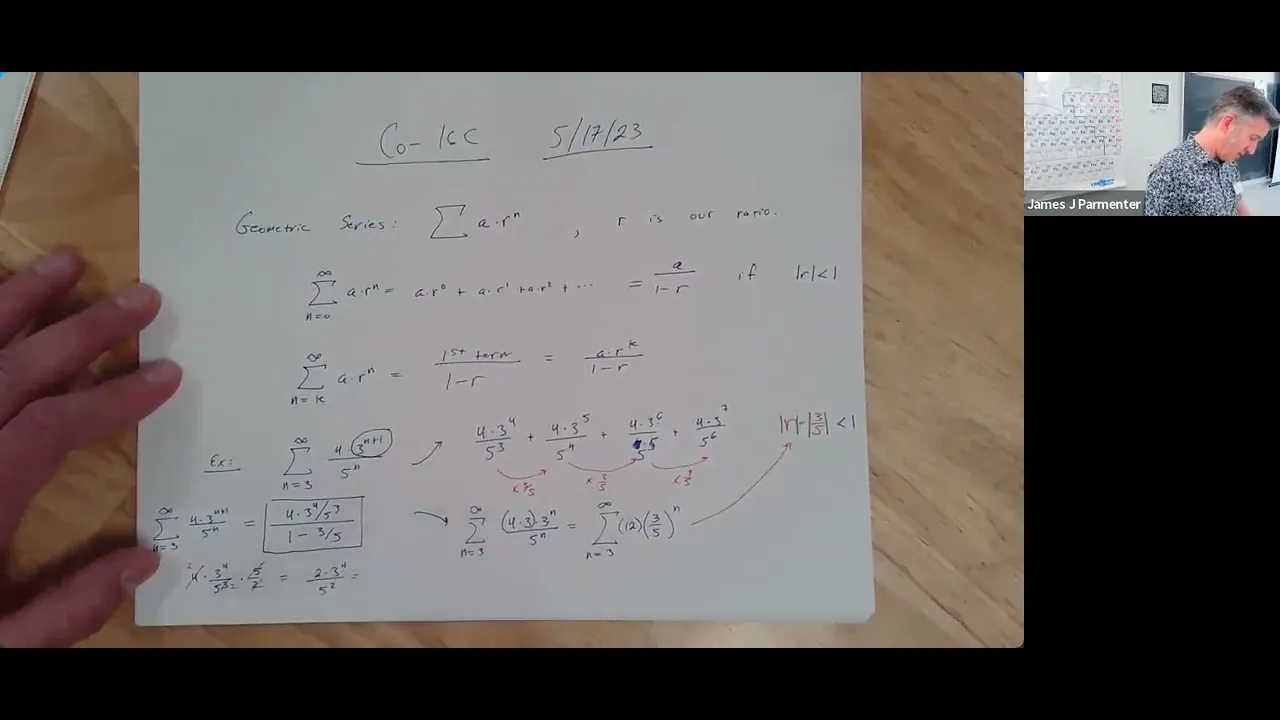 Co-16C 5/17/23
Geometric Series: ∑ a·rⁿ , r is our ratio.
∞∑n=0 a·rⁿ = a·r⁰ + a·r¹ + a·r² + ... = a/(1-r) if |r|<1
∞∑n=k a·rⁿ = 1st term/(1-r) = a·r^k/(1-r)
Ex: ∞∑n=3 4·3^(n+1)/5ⁿ → 4·3⁴/5³ + 4·3⁵/5⁴ + 4·3⁶/5⁵ + 4·3⁷/5⁶ |r|=|3/5|<1
×3/5 ×3/5 ×3/5
∞∑n=3 4·3^(n+1)/5ⁿ = (4·3⁴/5³)/(1-3/5) → ∞∑n=3 (4·3)·3ⁿ/5ⁿ = ∞∑n=3 (12)(3/5)ⁿ
4·3⁴/5³·5/2 = 2·3⁴/5² =
James J Parmenter